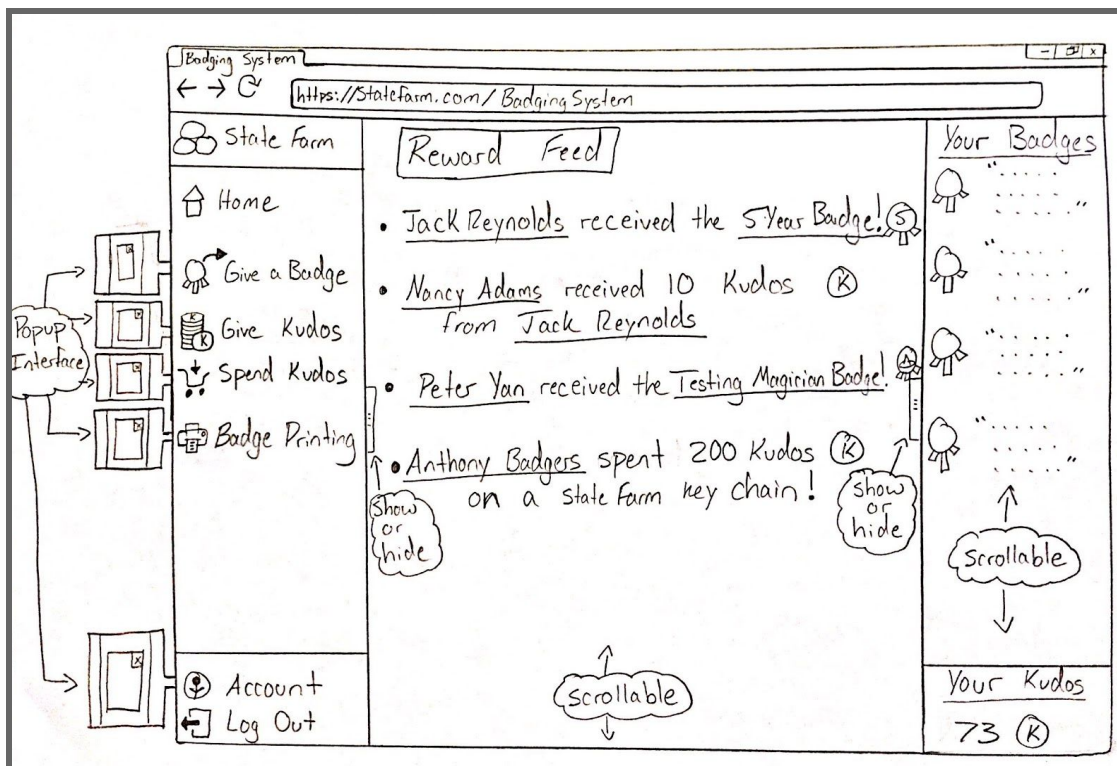 Badging System
https://Statefarm.com/BadgingSystem
State Farm
Home
Give a Badge
Give Kudos
Spend Kudos
Badge Printing
Account
Log Out
Popup
Interface
Reward Feed
Jack Reynolds received the 5 Year Badge! 5
Nancy Adams received 10 Kudos K
from Jack Reynolds
Peter Yan received the Testing Magician Badge!
Anthony Badgers spent 200 Kudos K
on a State Farm key chain!
Show
or
hide
Show
or
hide
Scrollable
Your Badges
Scrollable
Your Kudos
73 K